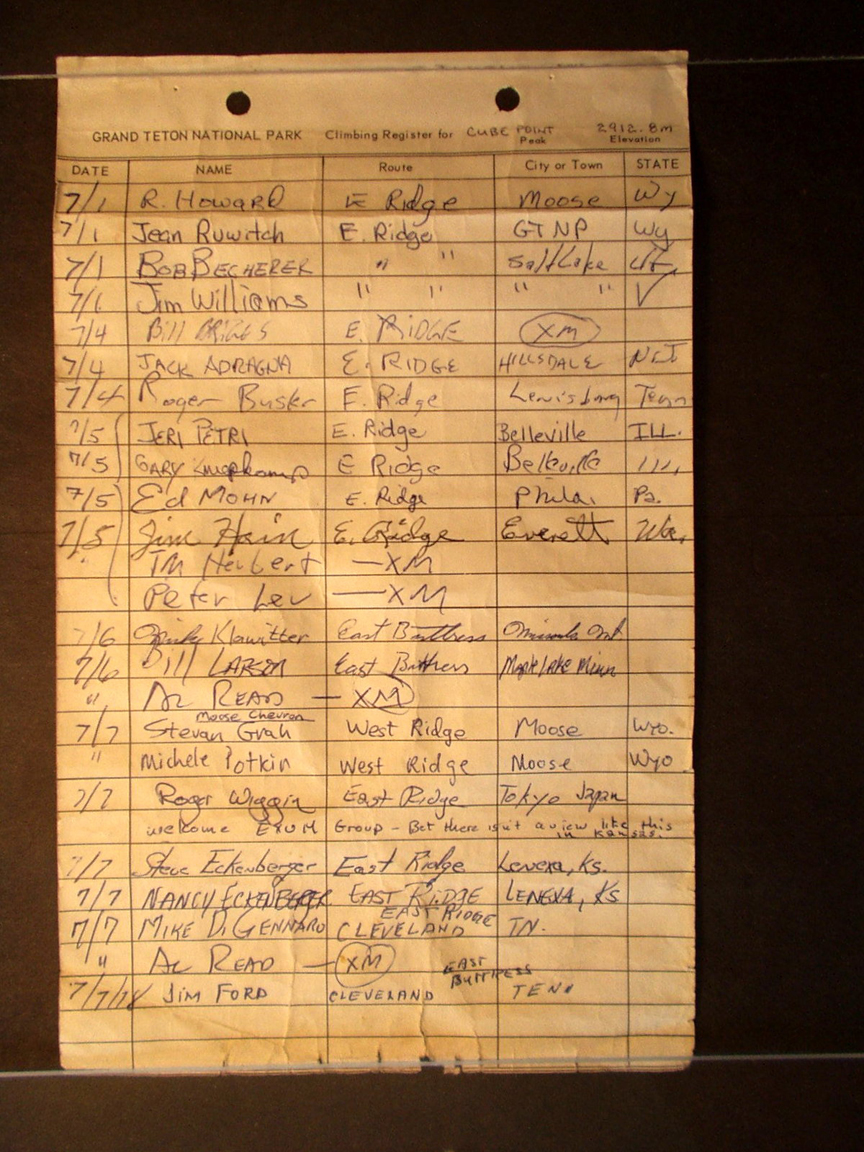 GRAND TETON NATIONAL PARK Climbing Register for CUBE POINT 2912.8m
Peak Elevation
DATE NAME Route City or Town STATE
7/1 R. HOWARD E Ridge Moose Wy
7/1 Jean Ruwitch E. Ridge GTNP Wy
7/1 BOB BECHERER " " Salt Lake UT
7/1 Jim Williams " " " " √
7/4 Bill BRIGGS E. RIDGE XM
7/4 JACK ADRAGNA E. RIDGE HILLSDALE NJ
7/4 Roger Busker E. Ridge Lewisburg Tenn
7/5 JERI PETRI E. Ridge Belleville ILL.
7/5 GARY E Ridge Belleville Ill.
7/5 Ed MOHN E. Ridge Phila. Pa.
7/5 Jim Hain E. Ridge Everett Wa.
TM Herbert — XM
Peter Lev — XM
7/6 Klawitter East Buttress Ont.
7/6 Bill LARSON East Buttress Maple Lake Minn
" AL READ — XM
Moose Chevron
7/7 Stevan Grah West Ridge Moose Wyo.
" Michele Potkin West Ridge Moose Wyo.
7/7 Roger Wiggin East Ridge Tokyo Japan
welcome EXUM Group - Bet there isn't a view like this
in Kansas.
7/7 Steve Eckenberger East Ridge Lenexa, Ks.
7/7 NANCY ECKENBERGER EAST RIDGE LENEXA, KS
EAST RIDGE
7/7 MIKE DiGENNARO CLEVELAND TN.
" AL READ — XM
EAST
BUTTRESS
7/7/78 JIM FORD CLEVELAND TENN